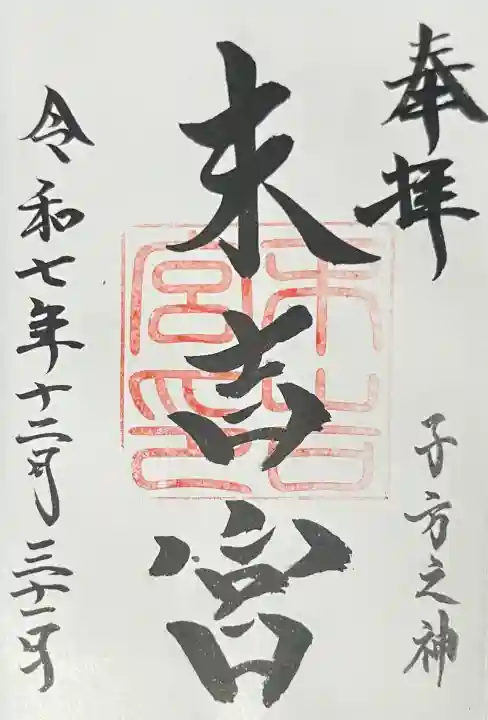 奉拝
子方之神
末吉宮
末吉宮印
令和七年十二月三十一日